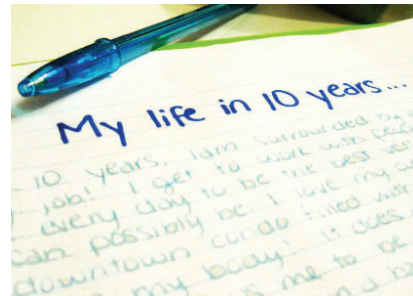 My life in 10 years...
10 years. I am surrounded by
job! I get to work with
every day to be the best
can possibly be. I love my
downtown condo filled with
my body! It does
is me to be